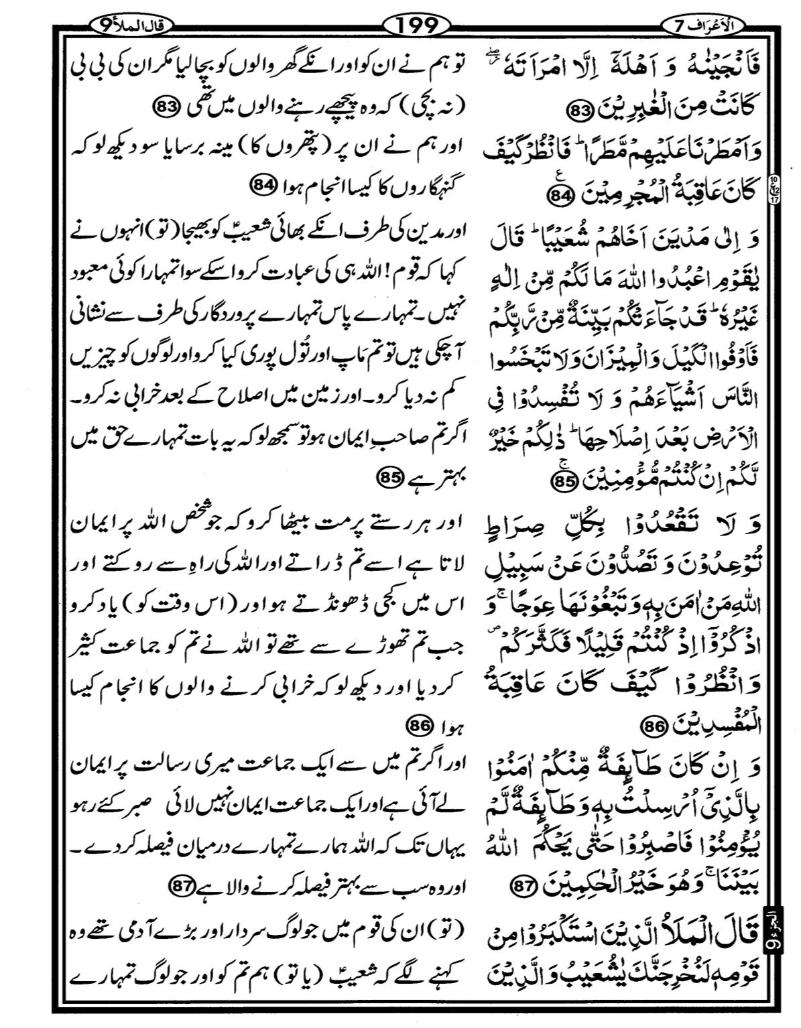 الاعراف 7
199
قال الملأ 9
فَاَنْجَيْنٰهُ وَ اَهْلَهٗۤ اِلَّا امْرَاَتَهٗ ۖ
كَانَتْ مِنَ الْغٰبِرِيْنَ 83
وَاَمْطَرْنَا عَلَيْهِمْ مَّطَرًا ؕ فَانْظُرْ كَيْفَ
كَانَ عَاقِبَةُ الْمُجْرِمِيْنَ 84 ع
وَ اِلٰى مَدْيَنَ اَخَاهُمْ شُعَيْبًا ؕ قَالَ
يٰقَوْمِ اعْبُدُوا اللّٰهَ مَا لَكُمْ مِّنْ اِلٰهٍ
غَيْرُهٗ ؕ قَدْ جَآءَتْكُمْ بَيِّنَةٌ مِّنْ رَّبِّكُمْ
فَاَوْفُوا الْكَيْلَ وَالْمِيْزَانَ وَلَا تَبْخَسُوا
النَّاسَ اَشْيَآءَهُمْ وَ لَا تُفْسِدُوْا فِى
الْاَرْضِ بَعْدَ اِصْلَاحِهَا ؕ ذٰلِكُمْ خَيْرٌ
لَّكُمْ اِنْ كُنْتُمْ مُّؤْمِنِيْنَ ۚ 85
وَ لَا تَقْعُدُوْا بِكُلِّ صِرَاطٍ
تُوْعِدُوْنَ وَ تَصُدُّوْنَ عَنْ سَبِيْلِ
اللّٰهِ مَنْ اٰمَنَ بِهٖ وَتَبْغُوْنَهَا عِوَجًا ۚ وَ
اذْكُرُوْۤا اِذْ كُنْتُمْ قَلِيْلًا فَكَثَّرَكُمْ ۪
وَانْظُرُوْا كَيْفَ كَانَ عَاقِبَةُ
الْمُفْسِدِيْنَ 86
وَ اِنْ كَانَ طَآئِفَةٌ مِّنْكُمْ اٰمَنُوْا
بِالَّذِىْۤ اُرْسِلْتُ بِهٖ وَطَآئِفَةٌ لَّمْ
يُؤْمِنُوْا فَاصْبِرُوْا حَتّٰى يَحْكُمَ اللّٰهُ
بَيْنَنَا ۚ وَهُوَ خَيْرُ الْحٰكِمِيْنَ 87
قَالَ الْمَلَاُ الَّذِيْنَ اسْتَكْبَرُوْا مِنْ
قَوْمِهٖ لَنُخْرِجَنَّكَ يٰشُعَيْبُ وَالَّذِيْنَ
تو ہم نے ان کو اور انکے گھر والوں کو بچا لیا مگر ان کی بی بی
(نہ بچی) کہ وہ پیچھے رہنے والوں میں تھی 83
اور ہم نے ان پر (پتھروں کا) مینہ برسایا سو دیکھ لو کہ
گنہگاروں کا کیسا انجام ہوا 84
اور مدین کی طرف انکے بھائی شعیبؑ کو بھیجا (تو) انہوں نے
کہا کہ قوم! اللہ ہی کی عبادت کرو اسکے سوا تمہارا کوئی معبود
نہیں۔ تمہارے پاس تمہارے پروردگار کی طرف سے نشانی
آ چکی ہیں تو تم ماپ اور تول پوری کیا کرو اور لوگوں کو چیزیں
کم نہ دیا کرو۔ اور زمین میں اصلاح کے بعد خرابی نہ کرو۔
اگر تم صاحبِ ایمان ہو تو سمجھ لو کہ یہ بات تمہارے حق میں
بہتر ہے 85
اور ہر رستے پر مت بیٹھا کرو کہ جو شخص اللہ پر ایمان
لاتا ہے اسے تم ڈراتے اور اللہ کی راہ سے روکتے اور
اس میں کجی ڈھونڈتے ہو اور (اس وقت کو) یاد کرو
جب تم تھوڑے سے تھے تو اللہ نے تم کو جماعت کثیر
کر دیا اور دیکھ لو کہ خرابی کرنے والوں کا انجام کیسا
ہوا 86
اور اگر تم میں سے ایک جماعت میری رسالت پر ایمان
لے آئی ہے اور ایک جماعت ایمان نہیں لائی صبر کئے رہو
یہاں تک کہ اللہ ہمارے تمہارے درمیان فیصلہ کر دے۔
اور وہ سب سے بہتر فیصلہ کرنے والا ہے 87
(تو) ان کی قوم میں جو لوگ سردار اور بڑے آدمی تھے وہ
کہنے لگے کہ شعیبؑ (یا تو) ہم تم کو اور جو لوگ تمہارے
الجزء 9